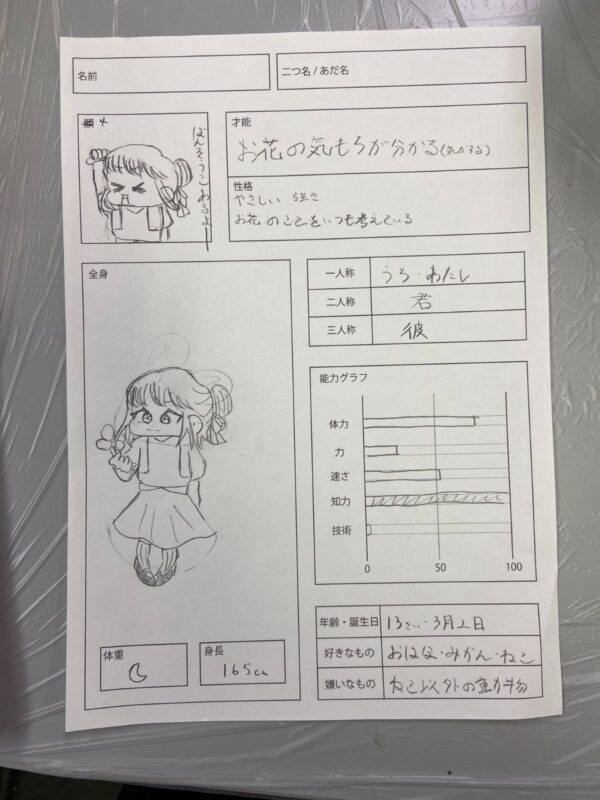 名前
二つ名 / あだ名
顔
ばんそうこあるよー
才能
お花の気もちが分かる(気がする)
性格
やさしい
お花のことをいつも考えている
全身
一人称 うち・わたし
二人称 君
三人称 彼
能力グラフ
体力
力
速さ
知力
技術
0 50 100
体重
身長
165cm
年齢・誕生日 13さい・3月2日
好きなもの お花・みかん・ねこ
嫌いなもの ねこ以外の動物